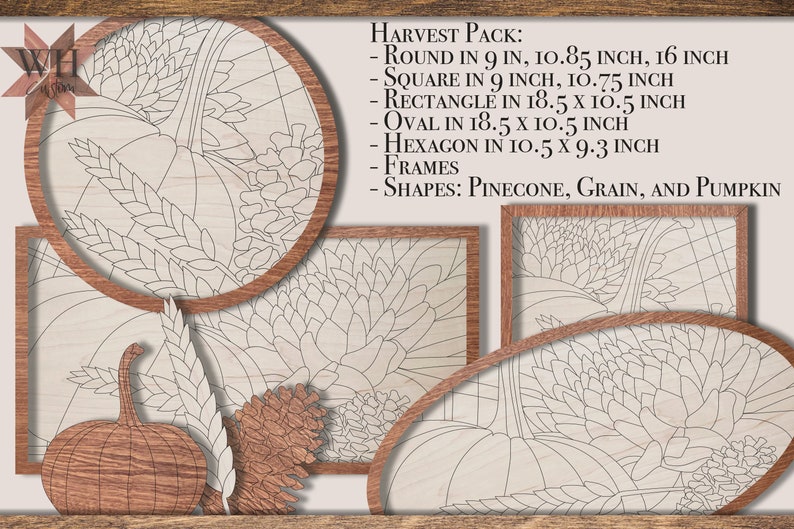 WH
Custom
Harvest Pack:
- Round in 9 in, 10.85 inch, 16 inch
- Square in 9 inch, 10.75 inch
- Rectangle in 18.5 x 10.5 inch
- Oval in 18.5 x 10.5 inch
- Hexagon in 10.5 x 9.3 inch
- Frames
- Shapes: Pinecone, Grain, and Pumpkin